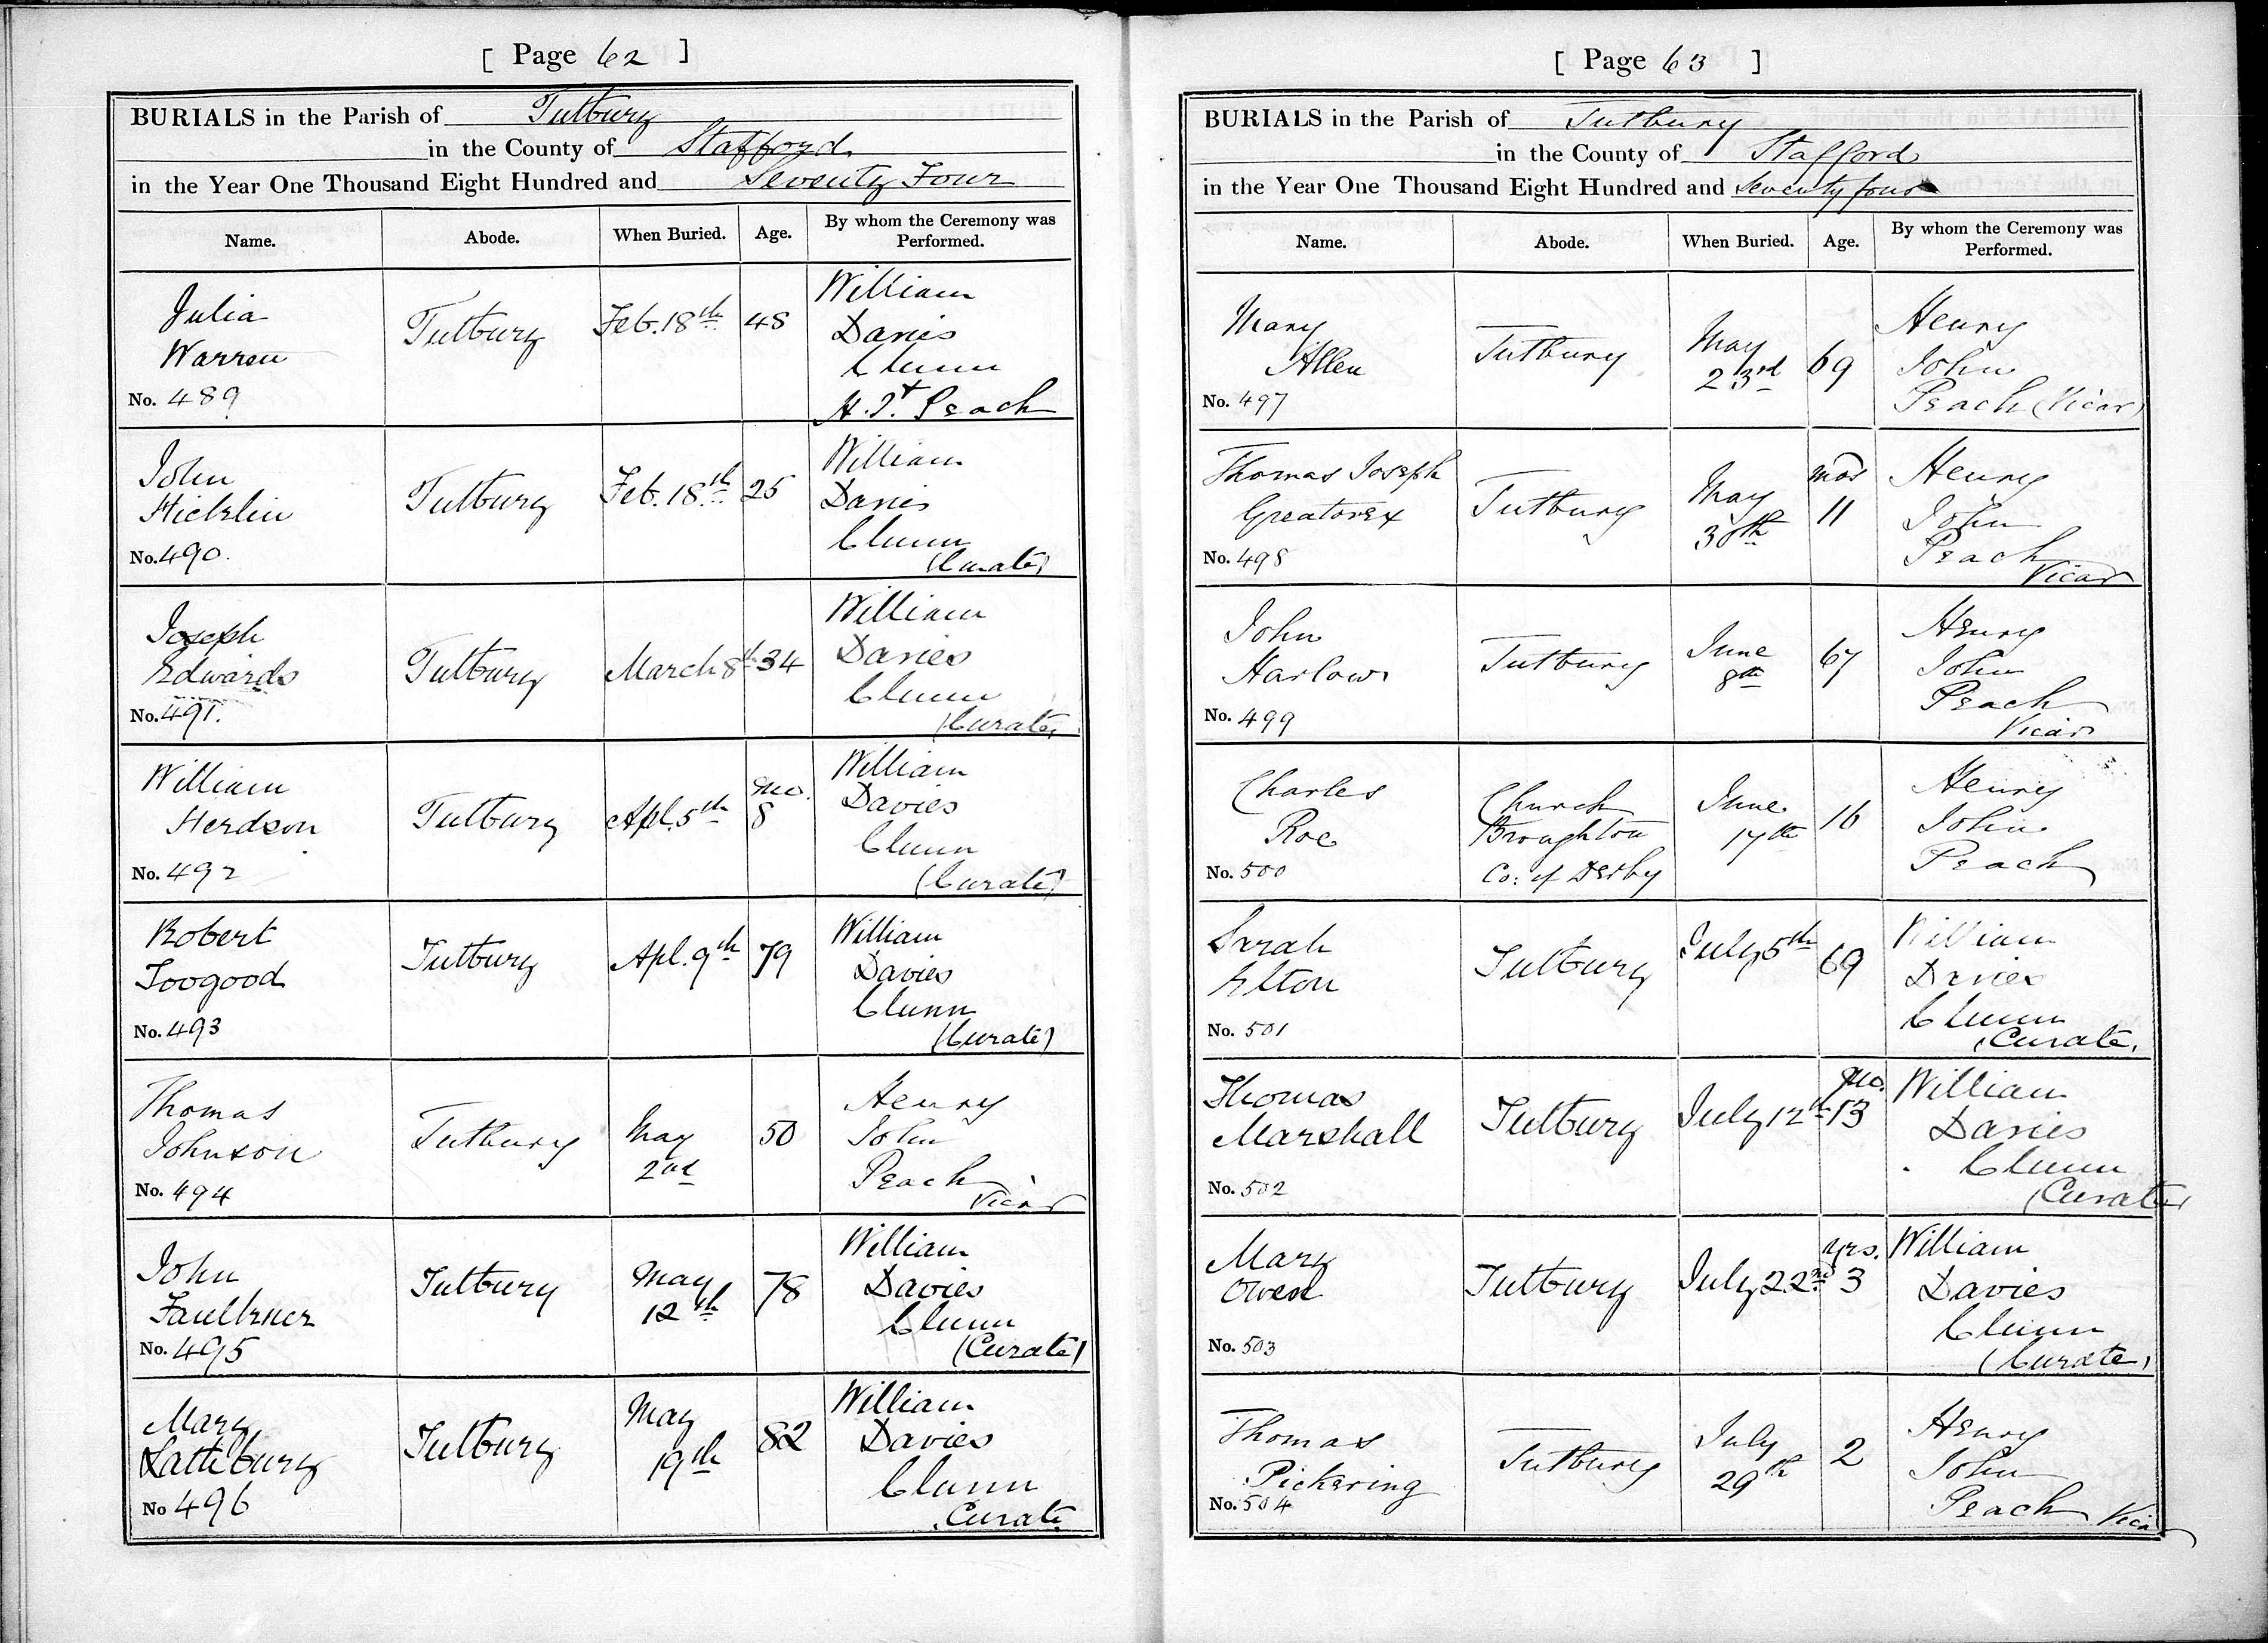 [ Page 62 ]
BURIALS in the Parish of Tutbury
in the County of Stafford
in the Year One Thousand Eight Hundred and Seventy Four
Name. Abode. When Buried. Age. By whom the Ceremony was Performed.
Julia Warren
No. 489
Tutbury
Feb. 18th
48
William
Davies
Clunn
Peach
John
Hicklin
No. 490.
Tutbury
Feb. 18th
25
William
Davies
Clunn
(Curate)
Joseph
Edwards
No. 491.
Tutbury
March 8th
34
William
Davies
Clunn
(Curate)
William
Herdson
No. 492
Tutbury
Apl. 5th
mo.
8
William
Davies
Clunn
(Curate)
Robert
Toogood
No. 493
Tutbury
Apl. 9th
79
William
Davies
Clunn
(Curate)
Thomas
Johnson
No. 494
Tutbury
May
2nd
50
Henry
John
Peach
Vicar
John
Faulkner
No. 495
Tutbury
May
12th
78
William
Davies
Clunn
(Curate)
Mary
Lathbury
No 496
Tutbury
May
19th
82
William
Davies
Clunn
Curate
[ Page 63 ]
BURIALS in the Parish of Tutbury
in the County of Stafford
in the Year One Thousand Eight Hundred and Seventy four
Name. Abode. When Buried. Age. By whom the Ceremony was Performed.
Mary
Allen
No. 497
Tutbury
May
23rd
69
Henry
John
Peach (Vicar)
Thomas Joseph
Greatorex
No. 498
Tutbury
May
30th
mos
11
Henry
John
Peach
Vicar
John
Harlow
No. 499
Tutbury
June
8th
67
Henry
John
Peach
Vicar
Charles
Roe
No. 500
Church
Broughton
Co: of Derby
June
17th
16
Henry
John
Peach
Sarah
Elton
No. 501
Tutbury
July 5th
69
William
Davies
Clunn
(Curate)
Thomas
Marshall
No. 502
Tutbury
July 12th
mo.
13
William
Davies
Clunn
(Curate)
Mary
Owen
No. 503
Tutbury
July 22nd
yrs.
3
William
Davies
Clunn
(Curate)
Thomas
Pickering
No. 504
Tutbury
July
29th
2
Henry
John
Peach Vicar